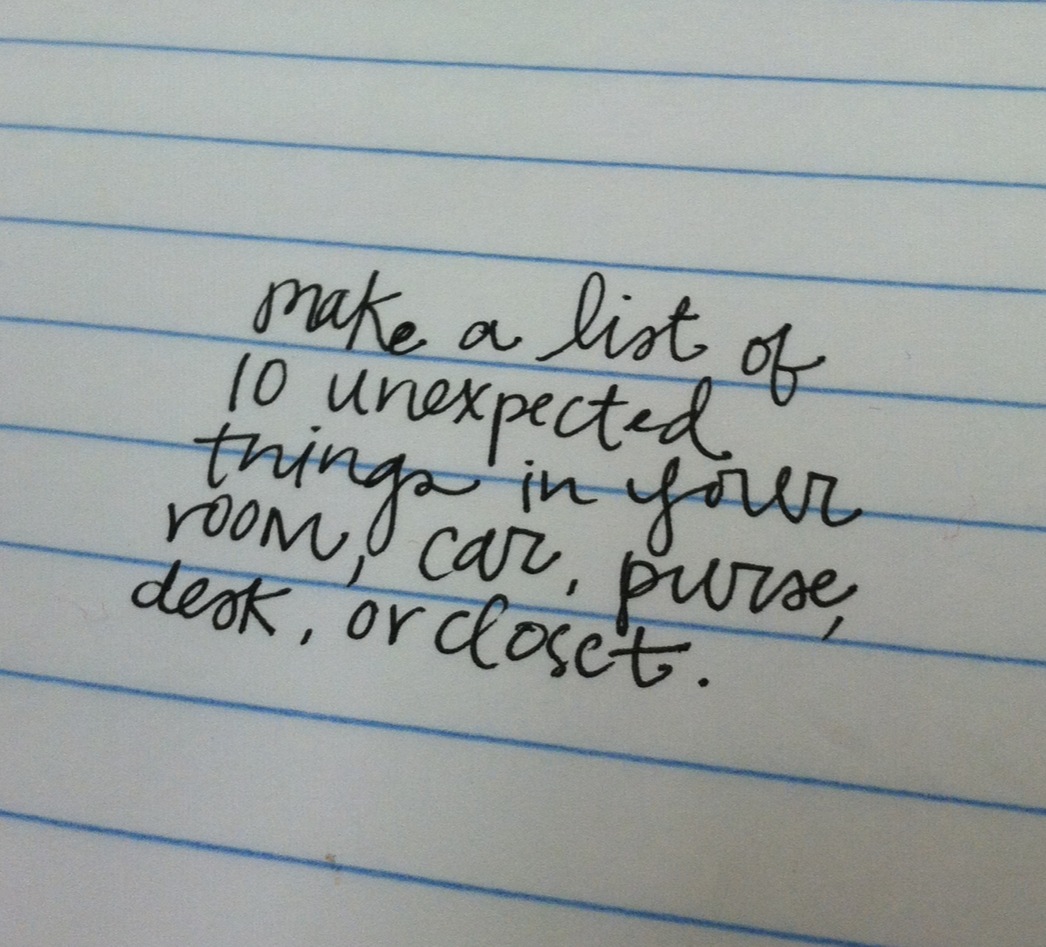 make a list of
10 unexpected
things in your
room, car, purse,
desk, or closet.